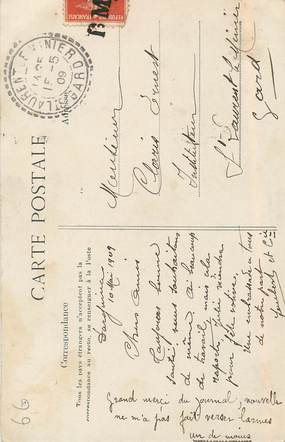 CARTE POSTALE
Correspondance
Tous les pays étrangers n'acceptent pas la
correspondance au recto, se renseigner à la Poste
Adresse
ST LAURENT LE MINIER
GARD
15-5
09
R.F.
Monsieur
Clovis Ernest
Instituteur
St Laurent le Minier
Gard
10 Mai 1909
Chers amis
Toujours bonne
santé vous souhaitons
de même. Ai beaucoup
de travail, mais cela
rapporte. Julie viendra
pour fête votive.
Une embrassade à tous
de notre part
Grand merci du journal, nouvelle
ne m'a pas fait verser larmes
un de moins